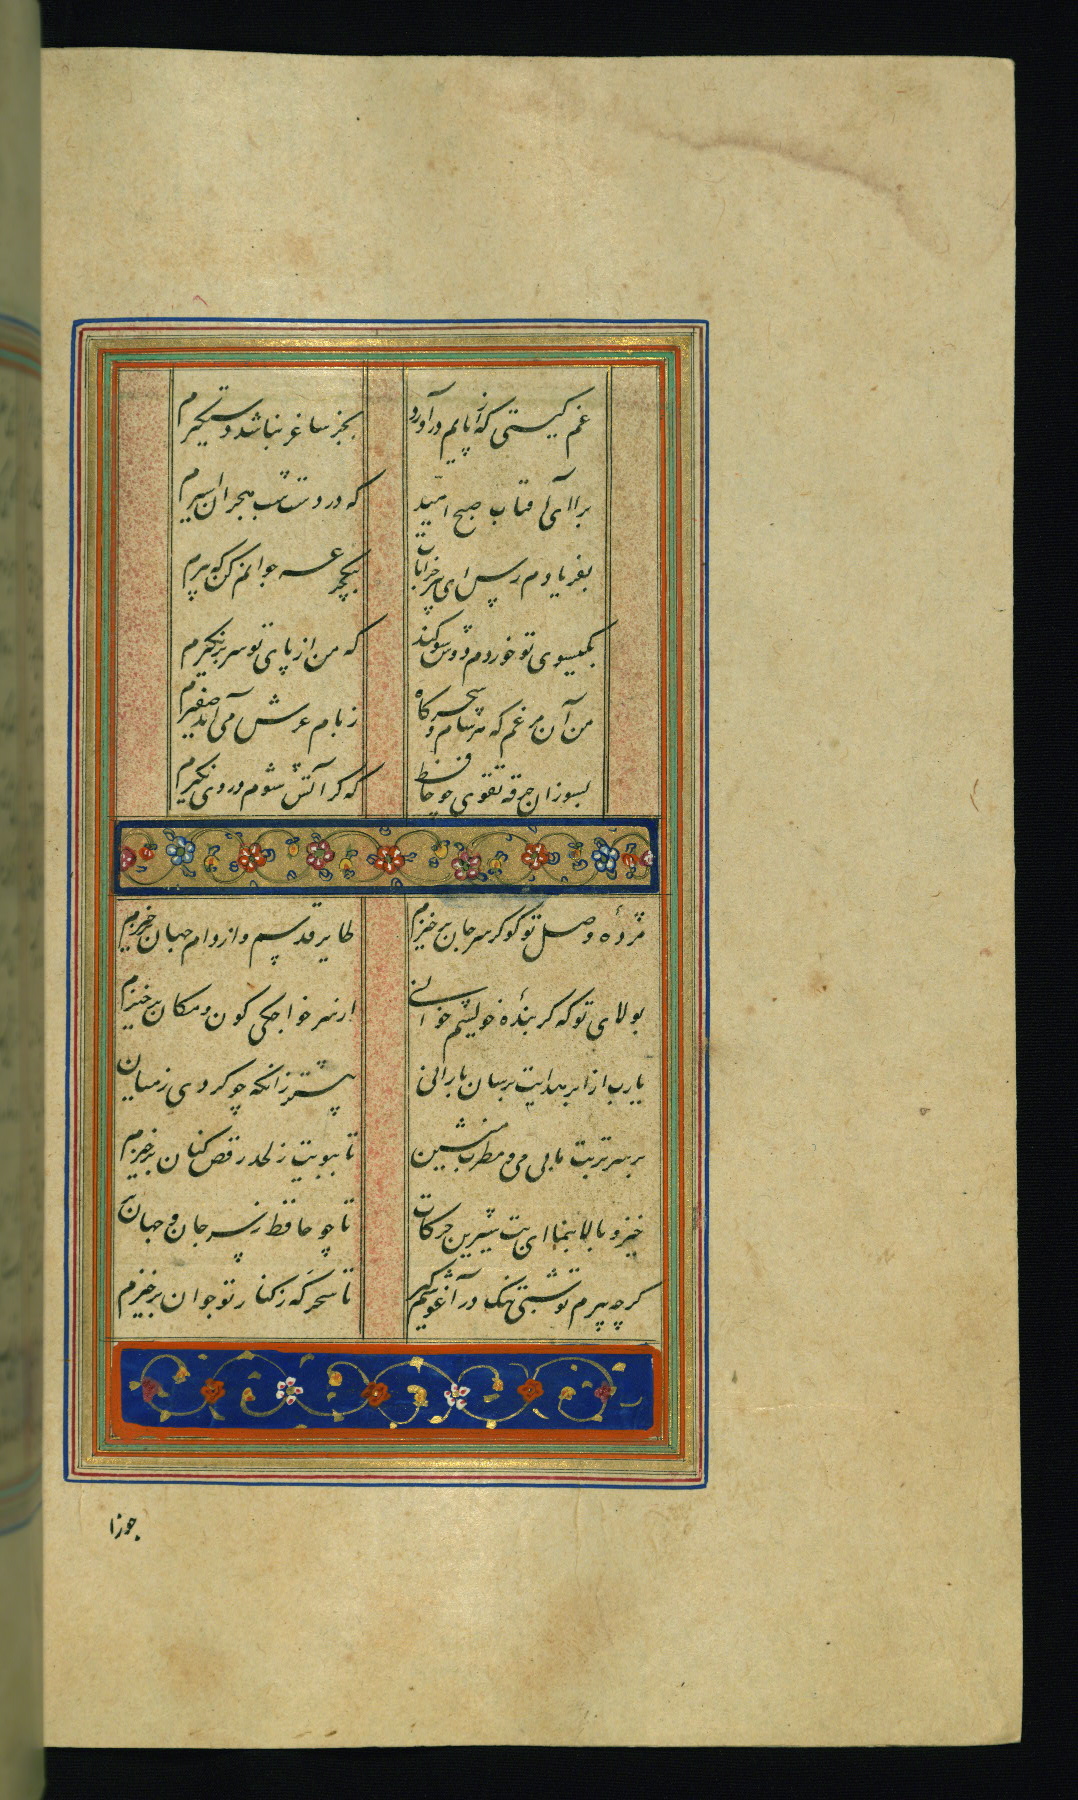 غم کیستی که از پایم درآورد بجز ساغر نباشد دستگیرم
برآ ای آفتاب صبح امید که در دست شب هجران اسیرم
بفریادم رس ای پیر خرابات بیکجرعه جوانم کن که پیرم
بگیسوی تو خوردم دوش سوگند که من از پای تو سر برنگیرم
من آن مرغم که هر شام و سحرگاه ز بام عرش می آید صفیرم
بسوز این خرقه تقوی چو حافظ که گر آتش شوم در وی نگیرم
مژدهٔ وصل تو کو کز سر جان برخیزم طایر قدسم و از دام جهان برخیزم
بولای تو که گر بندهٔ خویشم خوانی از سر خواجکی کون و مکان برخیزم
یارب از ابر هدایت برسان بارانی پیشتر زانکه چو کردی ز میان
بر سر تربت ما بی می و مطرب منشین تا ببویت ز لحد رقص کنان برخیزم
خیز و بالا بنما ای بت شیرین حرکات تا چو حافظ ز سر جان و جهان بر
کرچه پیرم تو شبی تنک در آغوشم کیر تا سحرکه ز کنار تو جوان برخیزم
جوزا